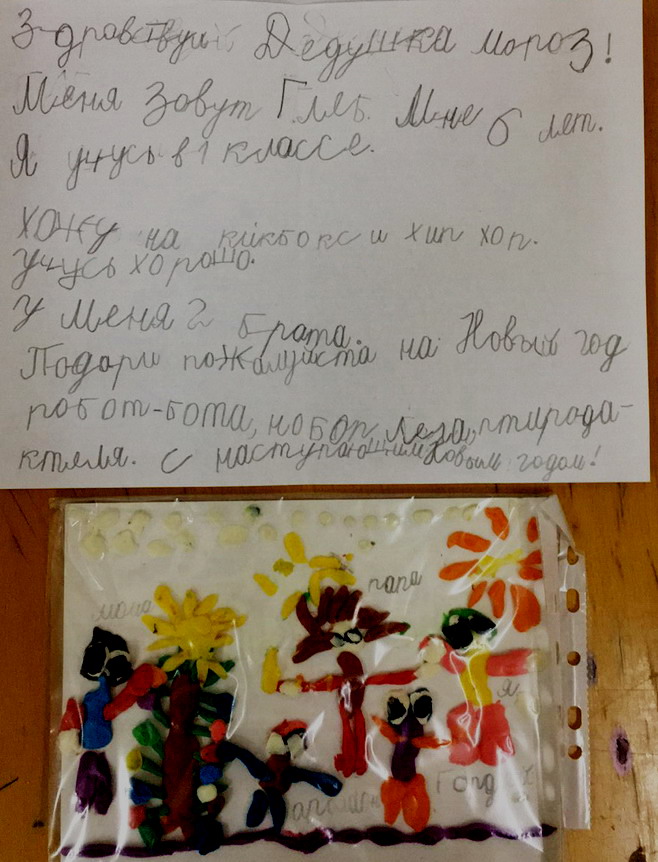 Здравствуй Дедушка мороз!
Меня Зовут Глеб. Мне 6 лет.
Я учусь в 1 классе.
хожу на кикбокс и хип хоп.
учусь хорошо.
У меня 2 брата.
Подари пожалуйста на Новый год
робот-бота, нобор Лего, птирода-
ктеля. с наступающим Новым годом!
мама
папа
я